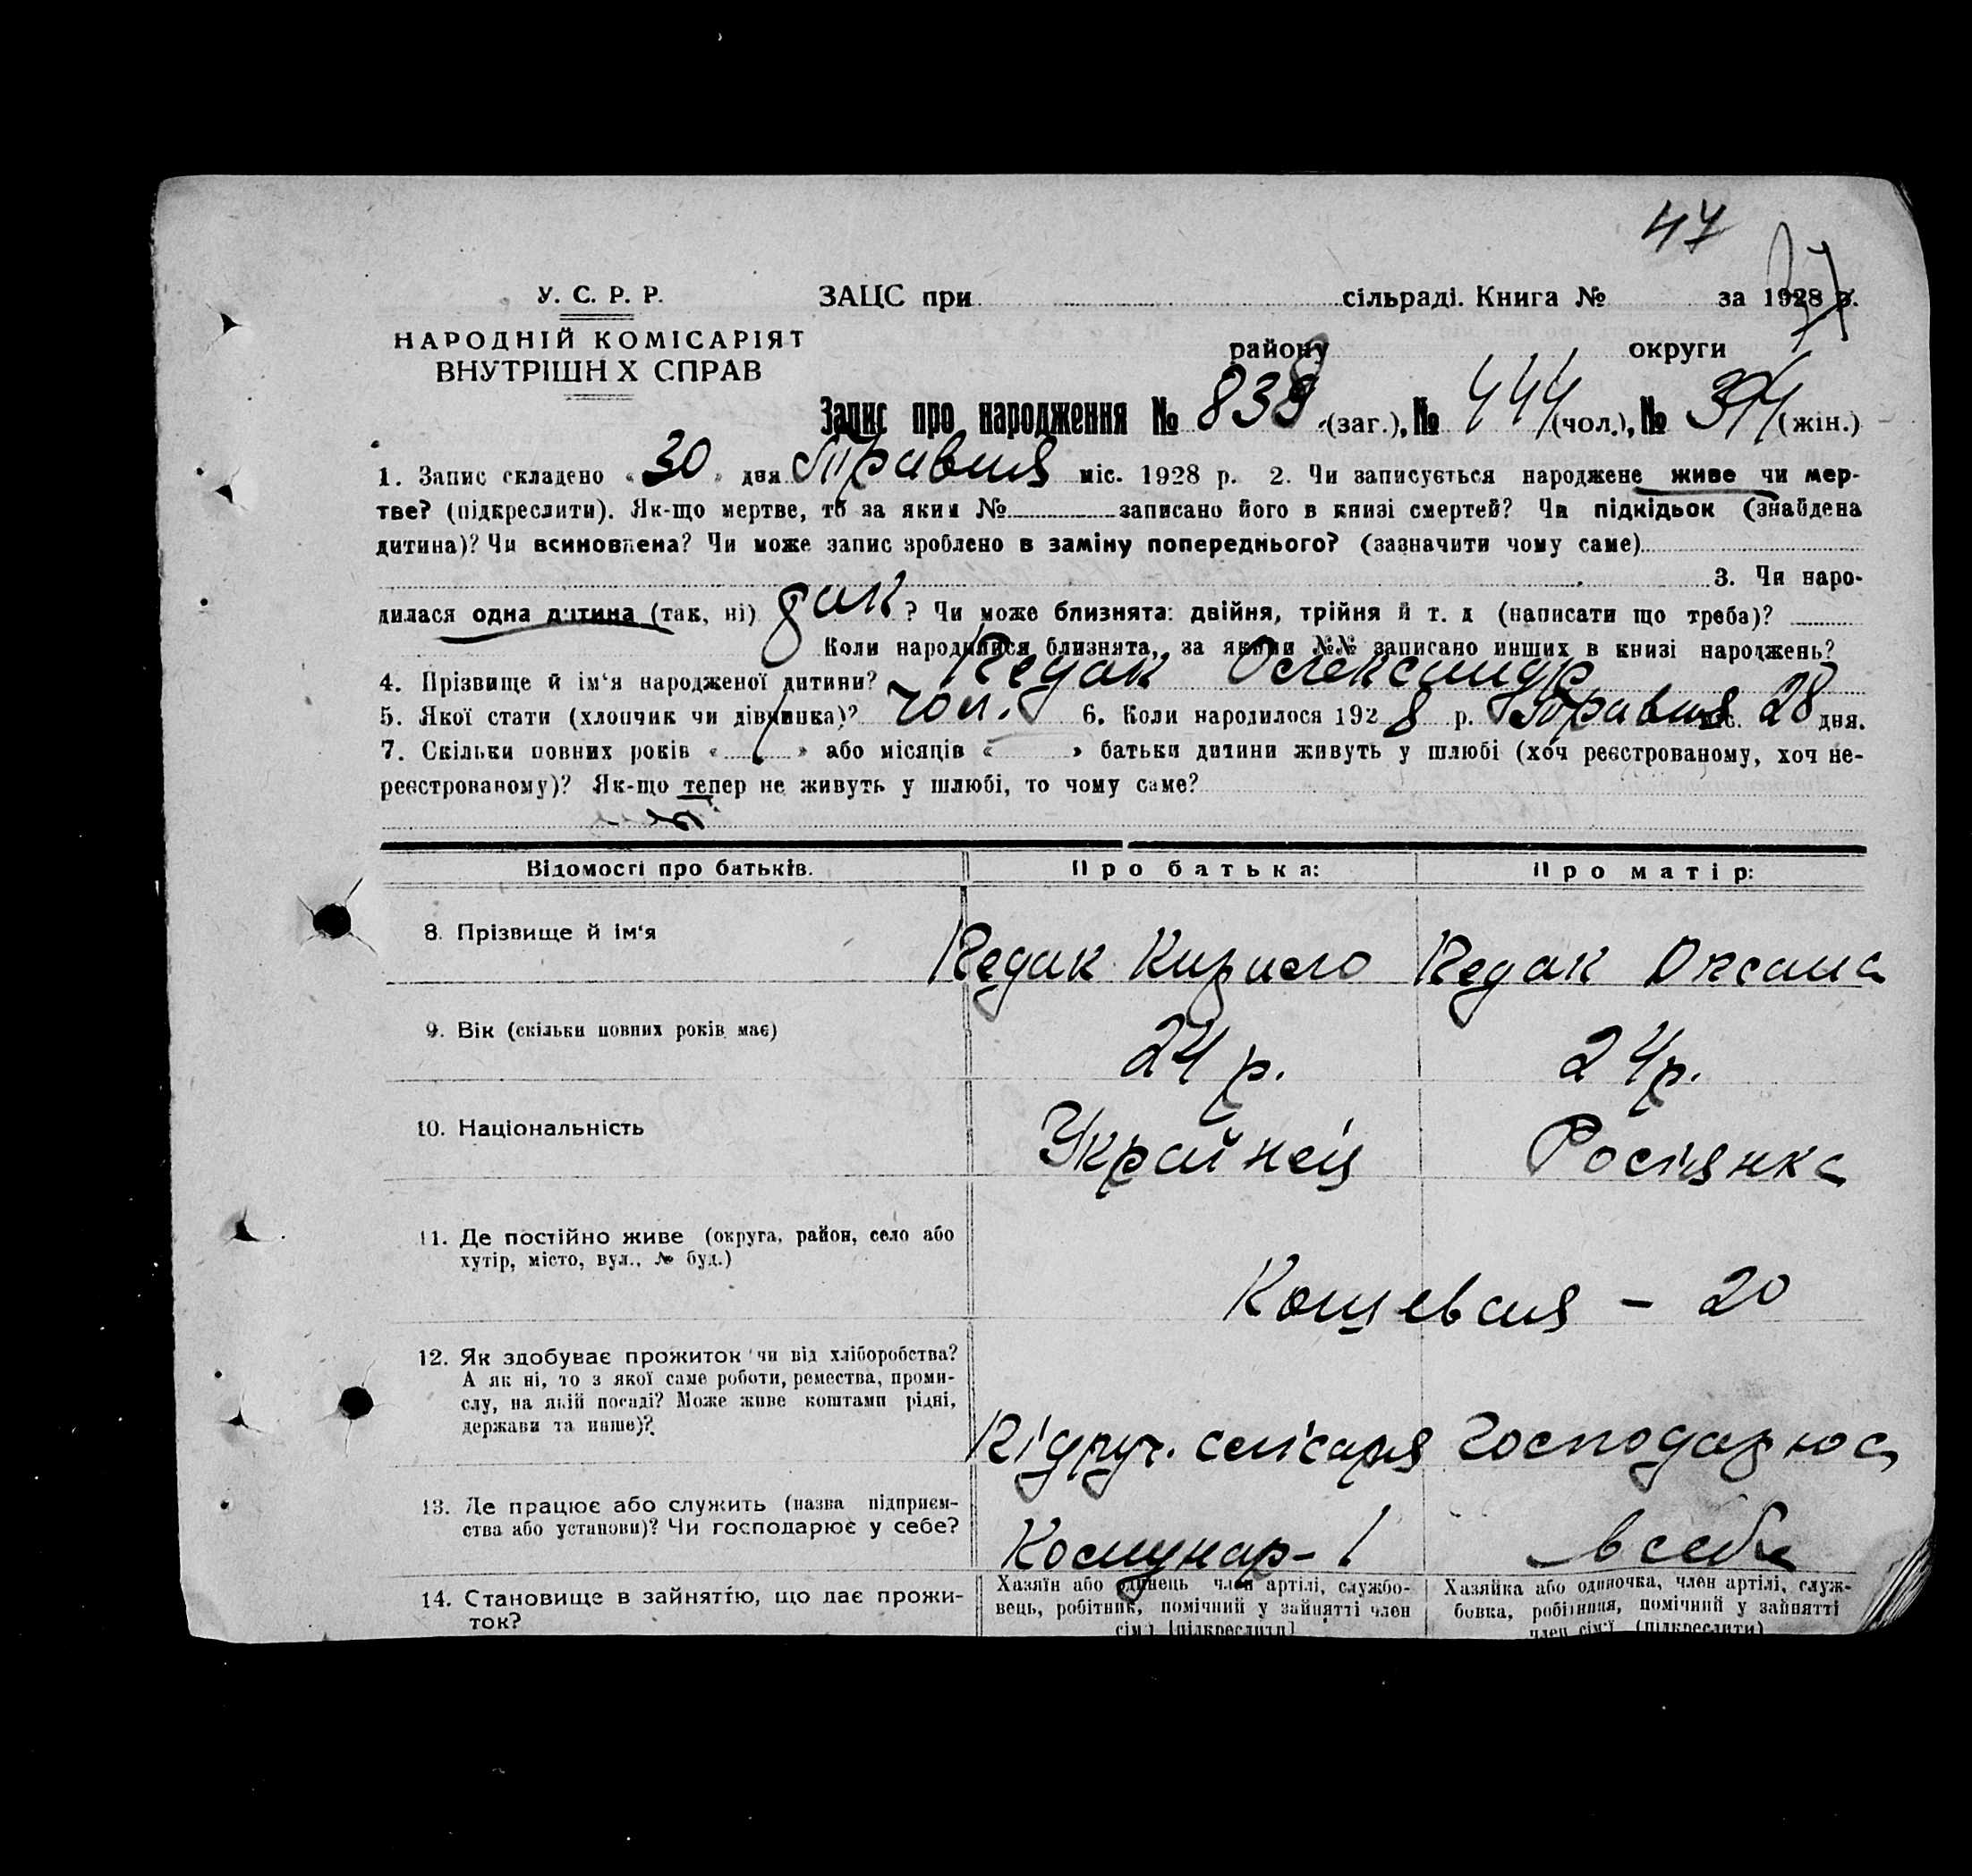 47
У. С. Р. Р.
НАРОДНІЙ КОМІСАРІЯТ
ВНУТРІШН Х СПРАВ
ЗАЦС при сільраді. Книга № за 1928 р.
району округи
Запис про народження № 838 (заг.), № 444 (чол.), № 394 (жін.)
1. Запис складено « 30 » дня Травня міс. 1928 р. 2. Чи записується народжене живе чи мер-
тве? (підкреслити). Як-що мертве, то за яким № записано його в книзі смертей? Чи підкідьок (знайдена
дитина)? Чи всиновлена? Чи може запис зроблено в заміну попереднього? (зазначити чому саме)
3. Чи наро-
дилася одна дитина (так, ні) так ? Чи може близнята: двійня, трійня й т. д (написати що треба)?
Коли народилися близнята, за якими №№ записано инших в книзі народжень?
4. Прізвище й ім'я народженої дитини? Редак Олександр
5. Якої стати (хлопчик чи дівчинка)? чол. 6. Коли народилося 1928 р. Травня міс. 28 дня.
7. Скільки повних років « » або місяців « » батьки дитини живуть у шлюбі (хоч реєстрованому, хоч не-
реєстрованому)? Як-що тепер не живуть у шлюбі, то чому саме?
Відомості про батьків. Про батька: Про матір:
8. Прізвище й ім'я Редак Кирило Редак Оксана
9. Вік (скільки повних років має) 24 р. 24 р.
10. Національність Українець Росіянка
11. Де постійно живе (округа, район, село або
хутір, місто, вул., № буд.)
20
12. Як здобуває прожиток чи від хліборобства?
А як ні, то з якої саме роботи, ремества, проми-
слу, на якій посаді? Може живе коштами рідні,
держави та инше)?
Підруч. слісаря Господарює
13. Де працює або служить (назва підприєм-
ства або установи)? Чи господарює у себе?
Комунар- 1 в себе
14. Становище в зайняттю, що дає прожи-
ток?
Хазяїн або одинець член артілі, службо-
вець, робітник, помічний у зайнятті член
сім'ї (підкреслити)
Хазяйка або одиночка, член артілі, служ-
бовка, робітниця, помічний у зайнятті
член сім'ї (підкреслити)